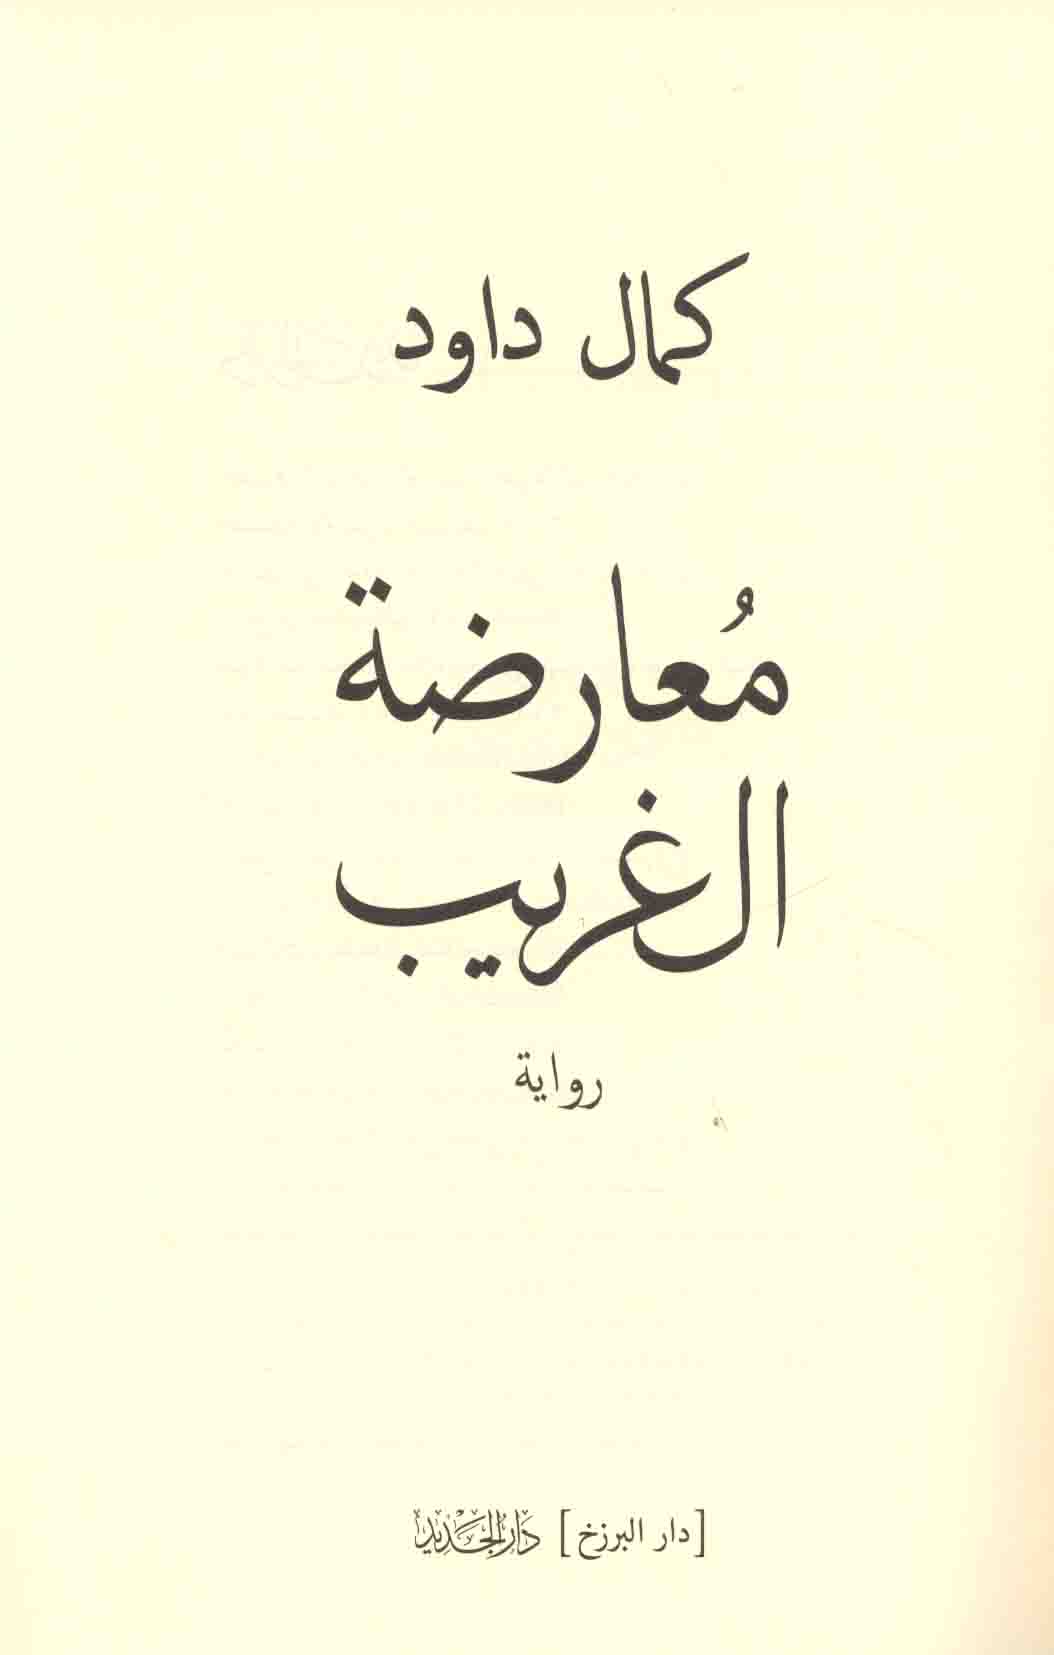 كمال داود
مُعارضة
الغريب
رواية
[دار البرزخ] دار الجديد